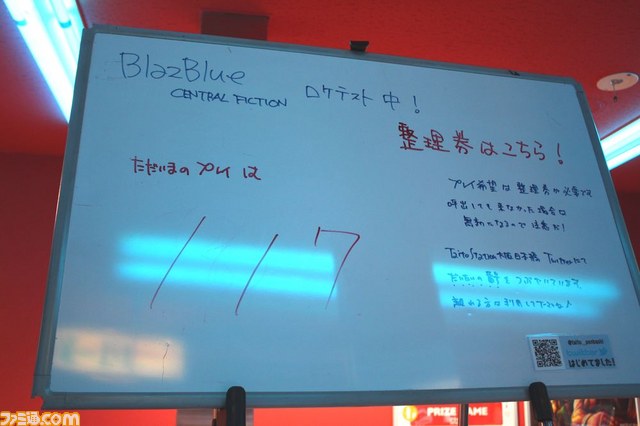 BlazBlue
CENTRAL FICTION ロケテスト中!
整理券はこちら!
ただいまのプレイは
117
プレイ希望は整理券が必要です
呼出しても来なかった場合は
無効になるので注意だ!
TaitoStation大阪日本橋 Twitterにて
だいたいの番号をつぶやいています
はじめてました!
PRIZE GAME
ファミ通.com